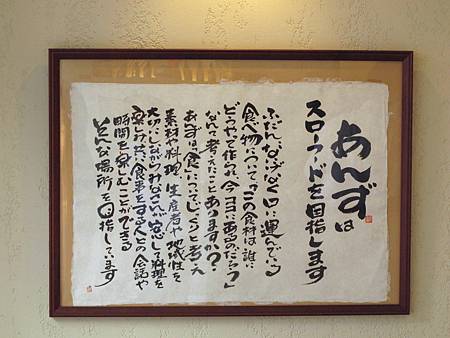 あんずは
スローフードを目指します
ふだん、なにげなく口に運んでいる
食べ物について「この食材は誰に
どうやって作られ、今ココにあるのだろう?」
なんて考えたことありますか?
あんずは、食についてじっくりと考え
素材や料理、生産者や地域性を
大切にしながらみなさんが安心して料理を
楽しみ共に食事をする人との会話や
時間を楽しむことができる
そんな場所を目指しています